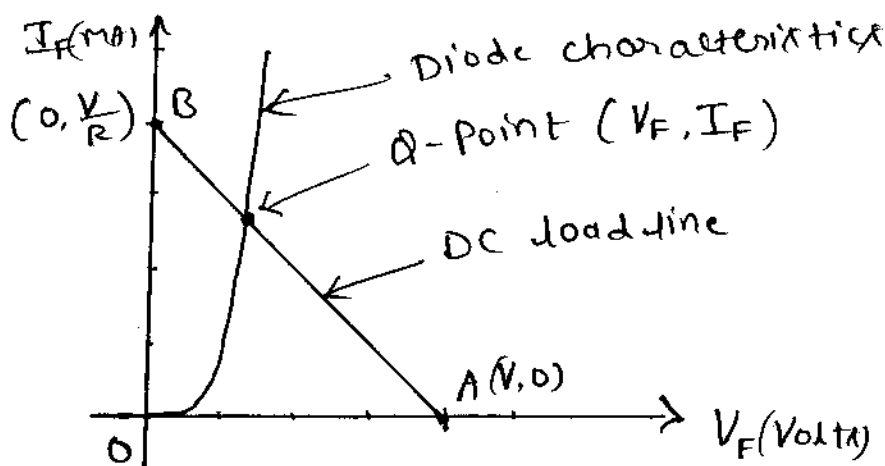 I_F(mA)
Diode characteristics
(0, V/R) B
Q-Point (V_F, I_F)
DC load line
A(V, 0)
0
V_F(Volts)